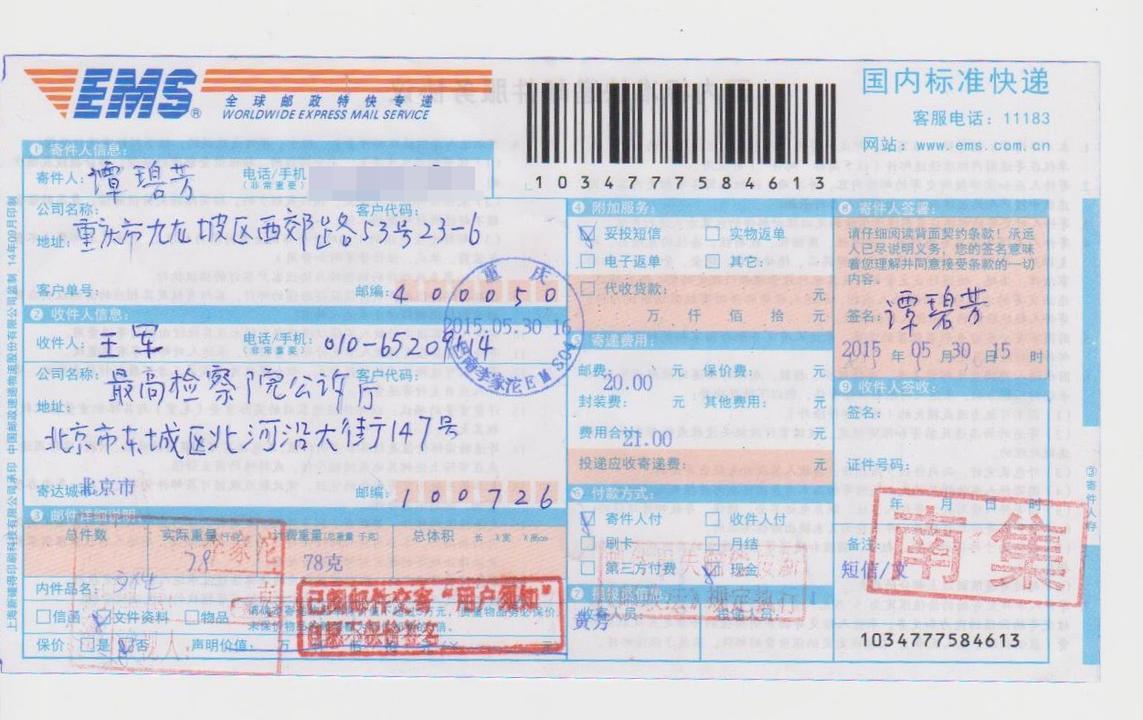 EMS®
全球邮政特快专递
WORLDWIDE EXPRESS MAIL SERVICE
1034777584613
国内标准快递
客服电话：11183
网站：www.ems.com.cn
❶ 寄件人信息：
寄件人：谭碧芳 电话/手机
（非常重要）
公司名称： 客户代码：
地址：重庆市九龙坡区西郊路53号23-6
客户单号： 邮编：400050
❷ 收件人信息：
收件人：王军 电话/手机：010-65209114
（非常重要）
公司名称：最高检察院公诉厅 客户代码：
地址：
北京市东城区北河沿大街147号
寄达城 北京市 邮编：100726
❸ 邮件详细说明：
总件数 实际重量 计费重量 总体积
78克
内件品名：
信函 文件资料 物品
保价： 是 否 声明价值：
已阅邮件交寄“用户须知”
重庆
2015.05.30 16
❹ 附加服务：
妥投短信 实物返单
电子返单 其它：
代收货款： 元
万 仟 佰 拾 元
❺ 寄递费用：
邮费：20.00 元 保价费： 元
封装费： 元 其他费用： 元
费用合计：21.00 元
投递应收寄递费： 元
付款方式：
寄件人付 收件人付
刷卡 月结
第三方付费 现金
❽ 寄件人签署：
请仔细阅读背面契约条款！承运
人已尽说明义务，您的签名意味
着您理解并同意接受条款的一切
内容。
签名：谭碧芳
2015年05月30日15时
❾ 收件人签收：
签名：
证件号码：
年 月 日 时
备注：
短信/
南集
1034777584613
③寄件人存